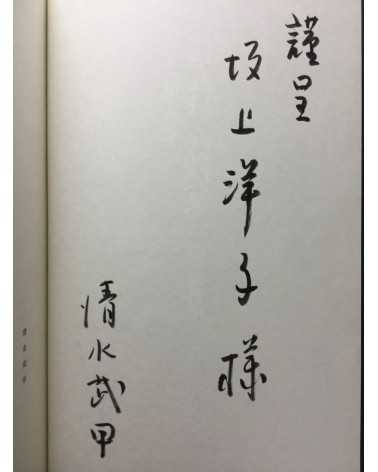 謹呈
坂上洋子様
清水武甲